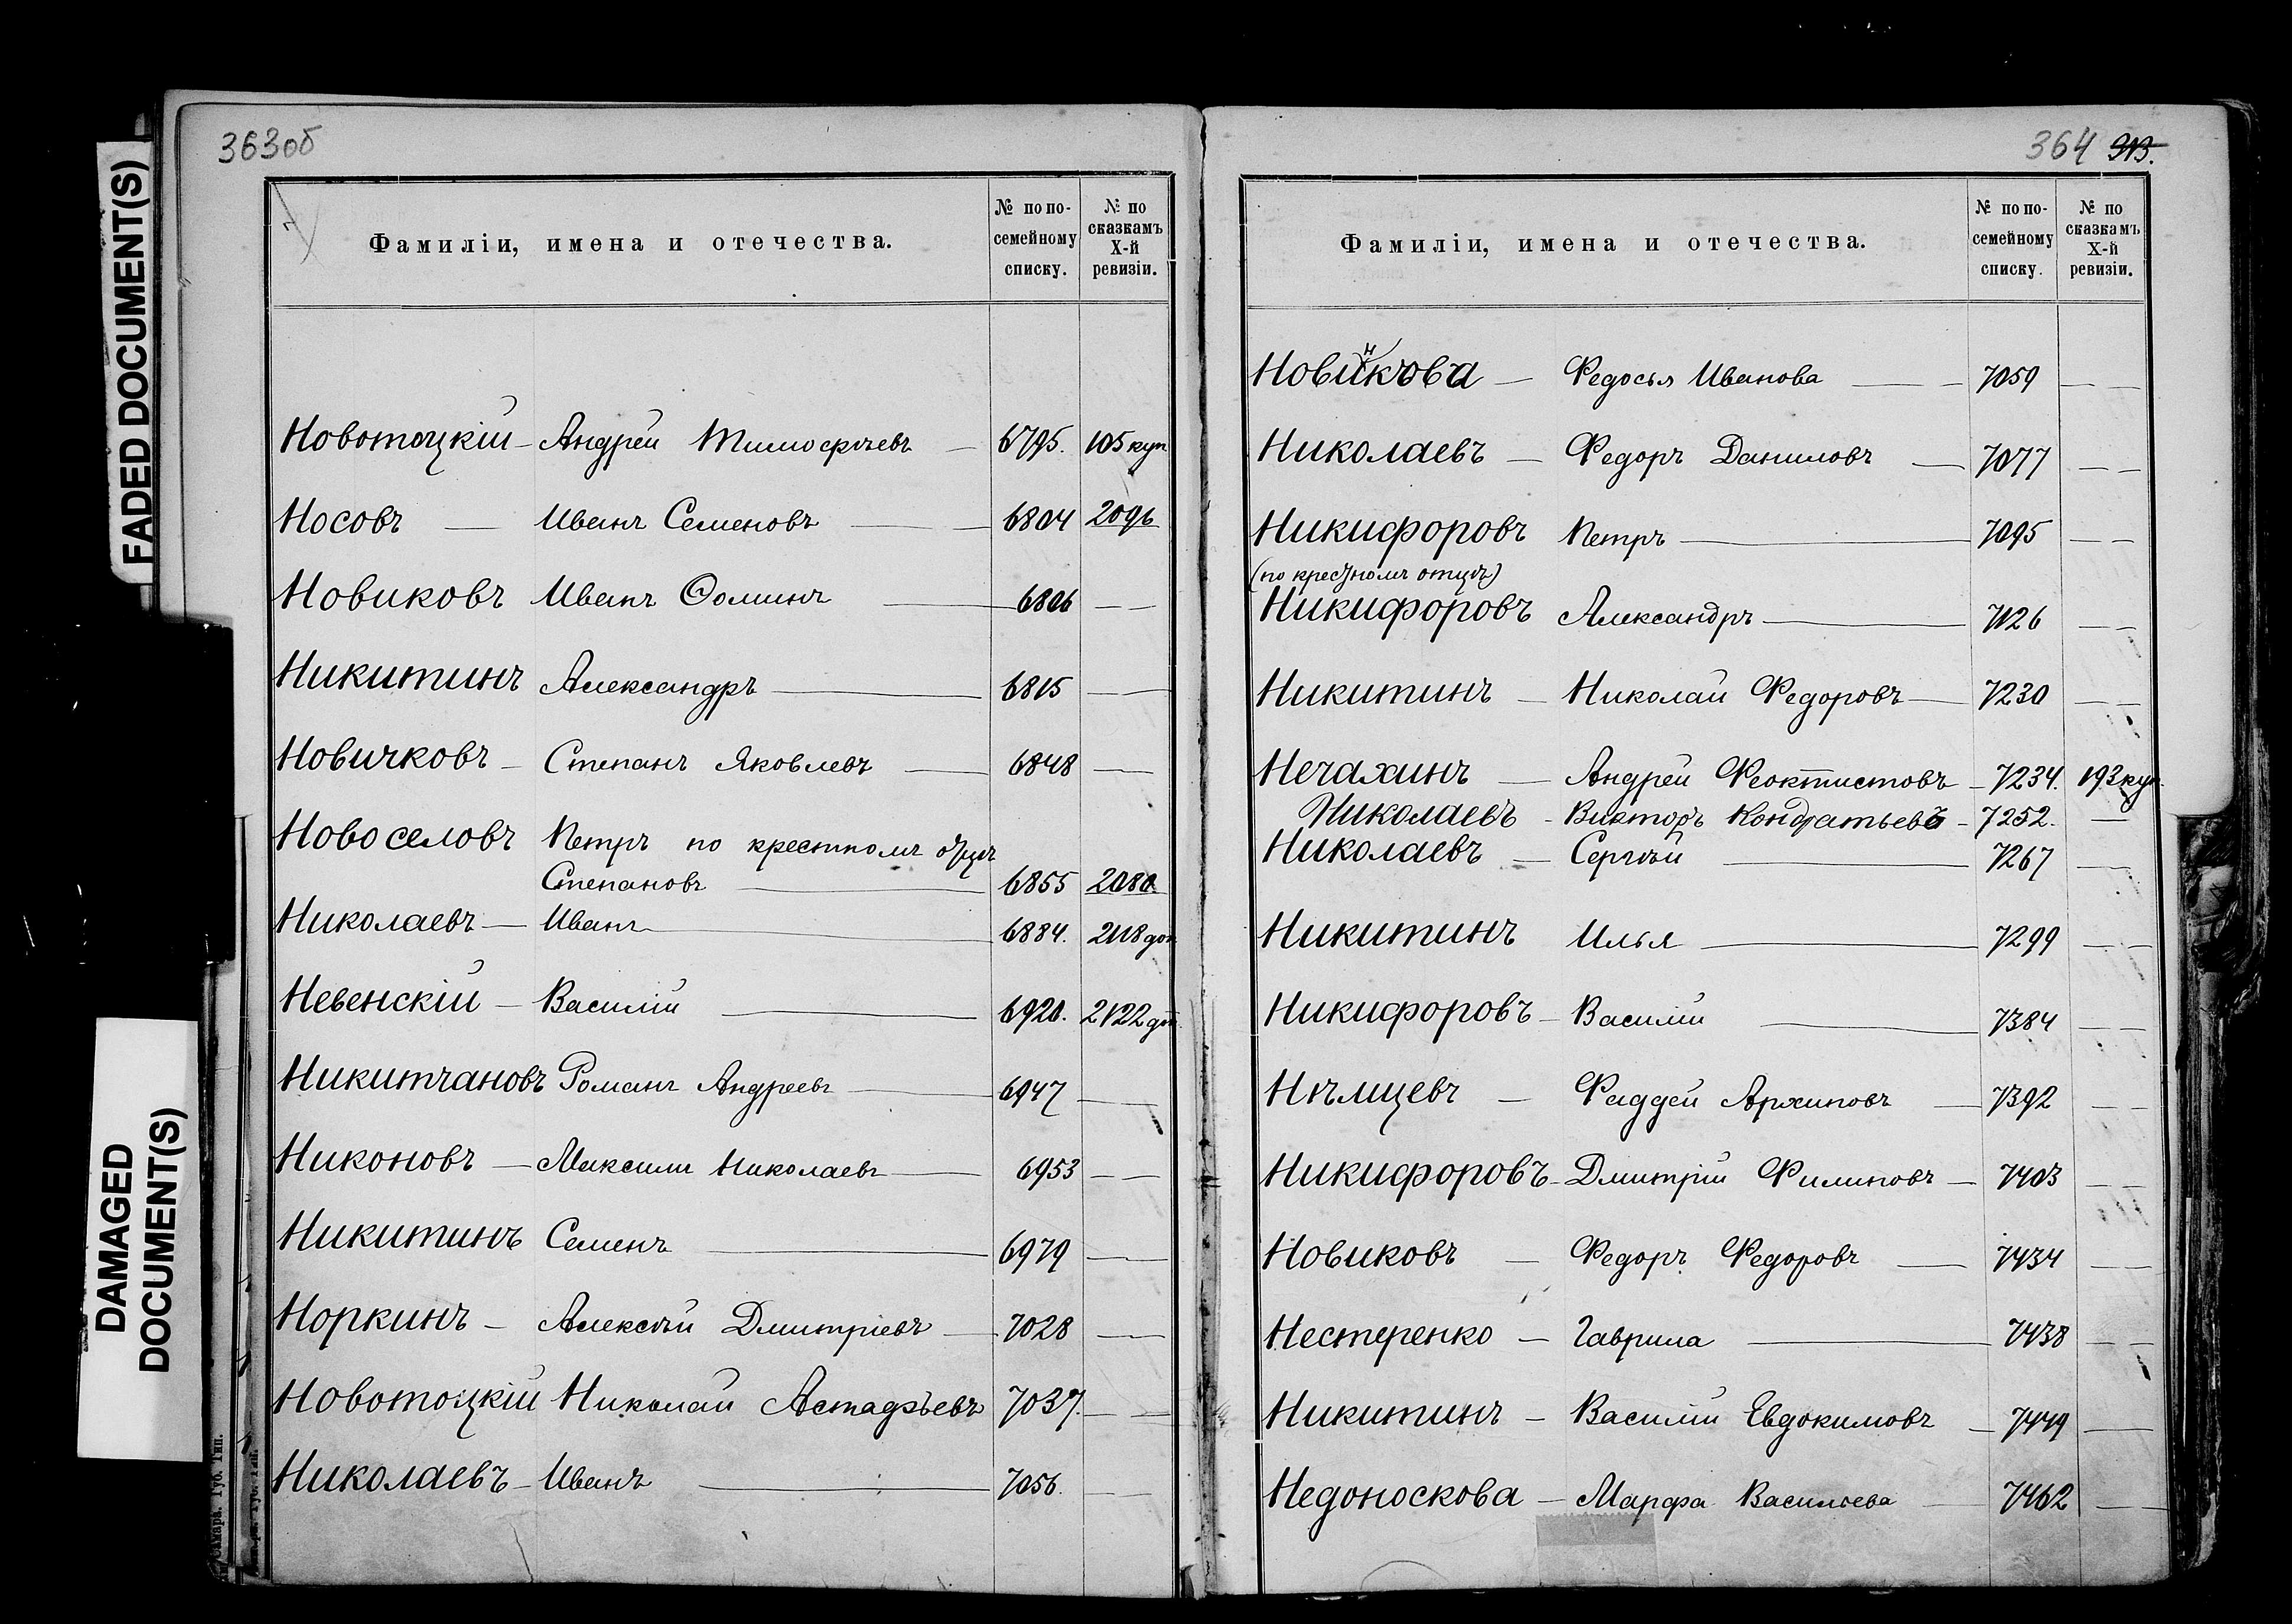 FADED DOCUMENT(S)
DAMAGED
DOCUMENT(S)
363об
Фамиліи, имена и отечества.
№ по по-
семейному
списку.
№ по
сказкамъ
X-й
ревизіи.
Новотоцкій - Андрей Тимофѣевъ — 6795. 105 куп
Носовъ — Иванъ Семеновъ — 6804 2096
Новиковъ Иванъ Ѳоминъ — 6806 — —
Никитинъ Александръ — 6815 — —
Новичковъ - Степанъ Яковлевъ — 6848 —
Новоселовъ Петръ по крестномъ отцѣ
Степановъ — 6855 2080.
Николаевъ — Иванъ — 6884. 2118 доп
Невенскій — Василій — 6920. 2122 доп.
Никитчановъ Романъ Андреевъ — 6947 — —
Никоновъ — Максимъ Николаевъ — 6953 — —
Никитинъ Семенъ — 6979 — —
Норкинъ — Алексѣй Дмитріевъ — 7028 — —
Новотоцкій Николай Астафьевъ 7037. — —
Николаевъ - Иванъ — 7056. — —
Самара. Губ. Тип.
364 313.
Фамиліи, имена и отечества.
№ по по-
семейному
списку.
№ по
сказкамъ
X-й
ревизіи.
н
Новикова — Федосья Иванова — 7059 — —
Николаевъ — Федоръ Даниловъ — 7077 — —
Никифоровъ Петръ — 7095 — —
(по крестномъ отцѣ)
Никифоровъ Александръ — 7126 — —
Никитинъ — Николай Федоровъ — 7230 — —
Нечахинъ — Андрей Феоктистовъ - 7234. 193 куп.
Николаевъ - Викторъ Кондратьевъ - 7252. —
Николаевъ — Сергѣй — 7267 — —
Никитинъ Илья — 7299 — —
Никифоровъ - Василій — 7384 — —
Нѣмцевъ — Фаддей Архиповъ — 7392 — —
Никифоровъ - Дмитрій Филиповъ — 7403 — —
Новиковъ — Федоръ Федоровъ — 7434 — —
Нестеренко — Гаврила — 7438 — —
Никитинъ — Василій Евдокимовъ — 7449 —
Недоноскова — Марфа Васильева — 7462 —